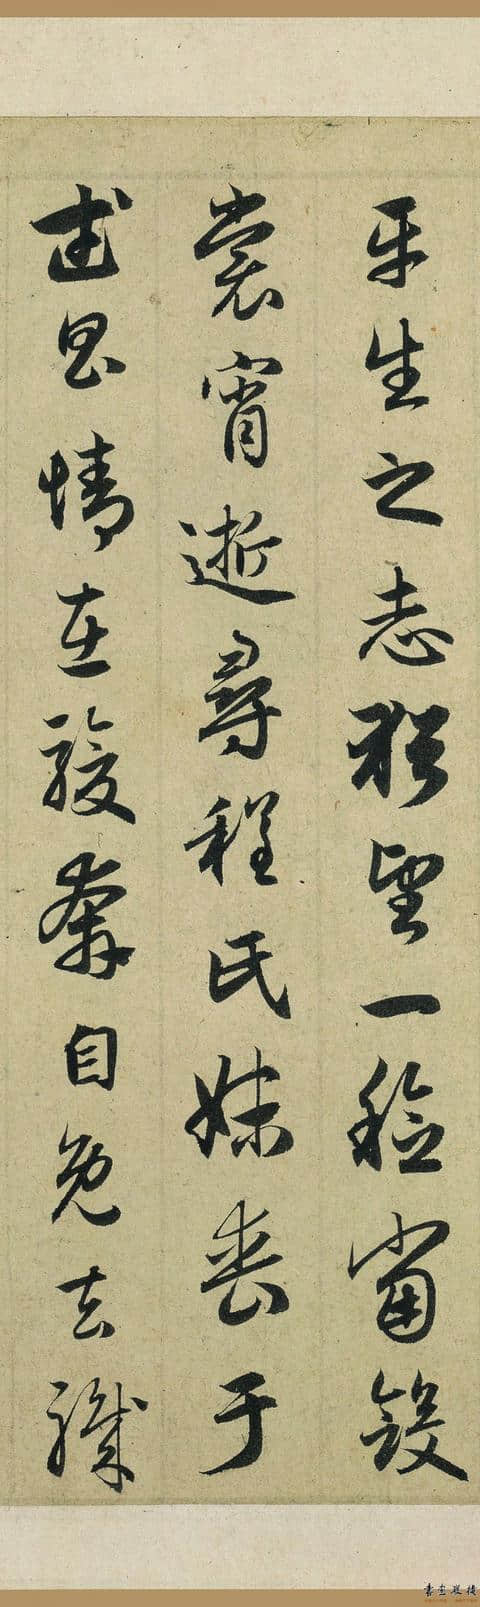 平生之志猶望一稔當斂
裳宵逝尋程氏妹喪于
武昌情在駿奔自免去職